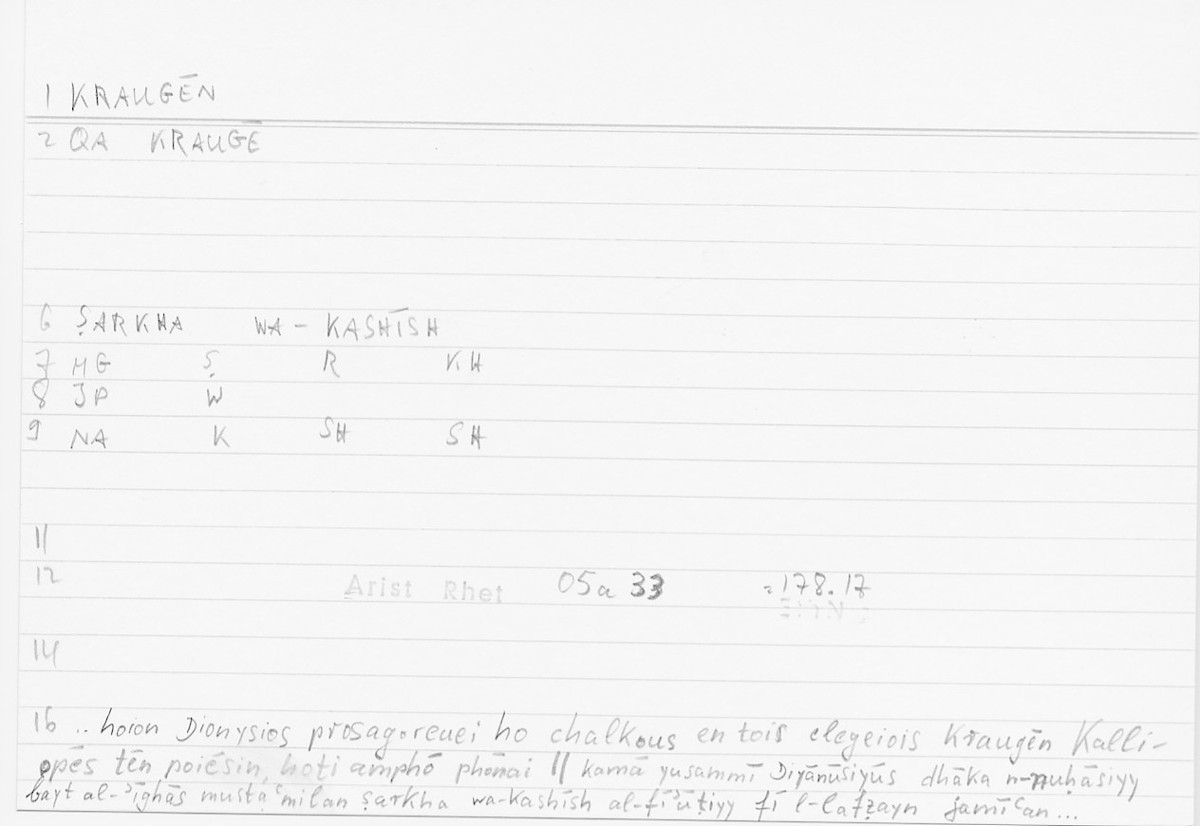 1 KRAUGĒN
2 QA KRAUGĒ
6 ṢARKHA WA-KASHĪSH
7 MG Ṣ R KH
8 JP W
9 NA K SH SH
11
12 Arist Rhet 05a 33 = 178.17
14
16 .. hoion Dionysios prosagoreuei ho chalkous en tois elegeiois Kraugēn Kalli-
opēs tēn poiēsin, hoti amphō phōnai || kamā yusammī Diyānūsiyūs dhāka n-nuḥāsiyy
bayt al-ʾighās mustaʿmilan ṣarkha wa-kashīsh al-fīʾūṭiyy fī l-lafẓayn jamīʿan ...